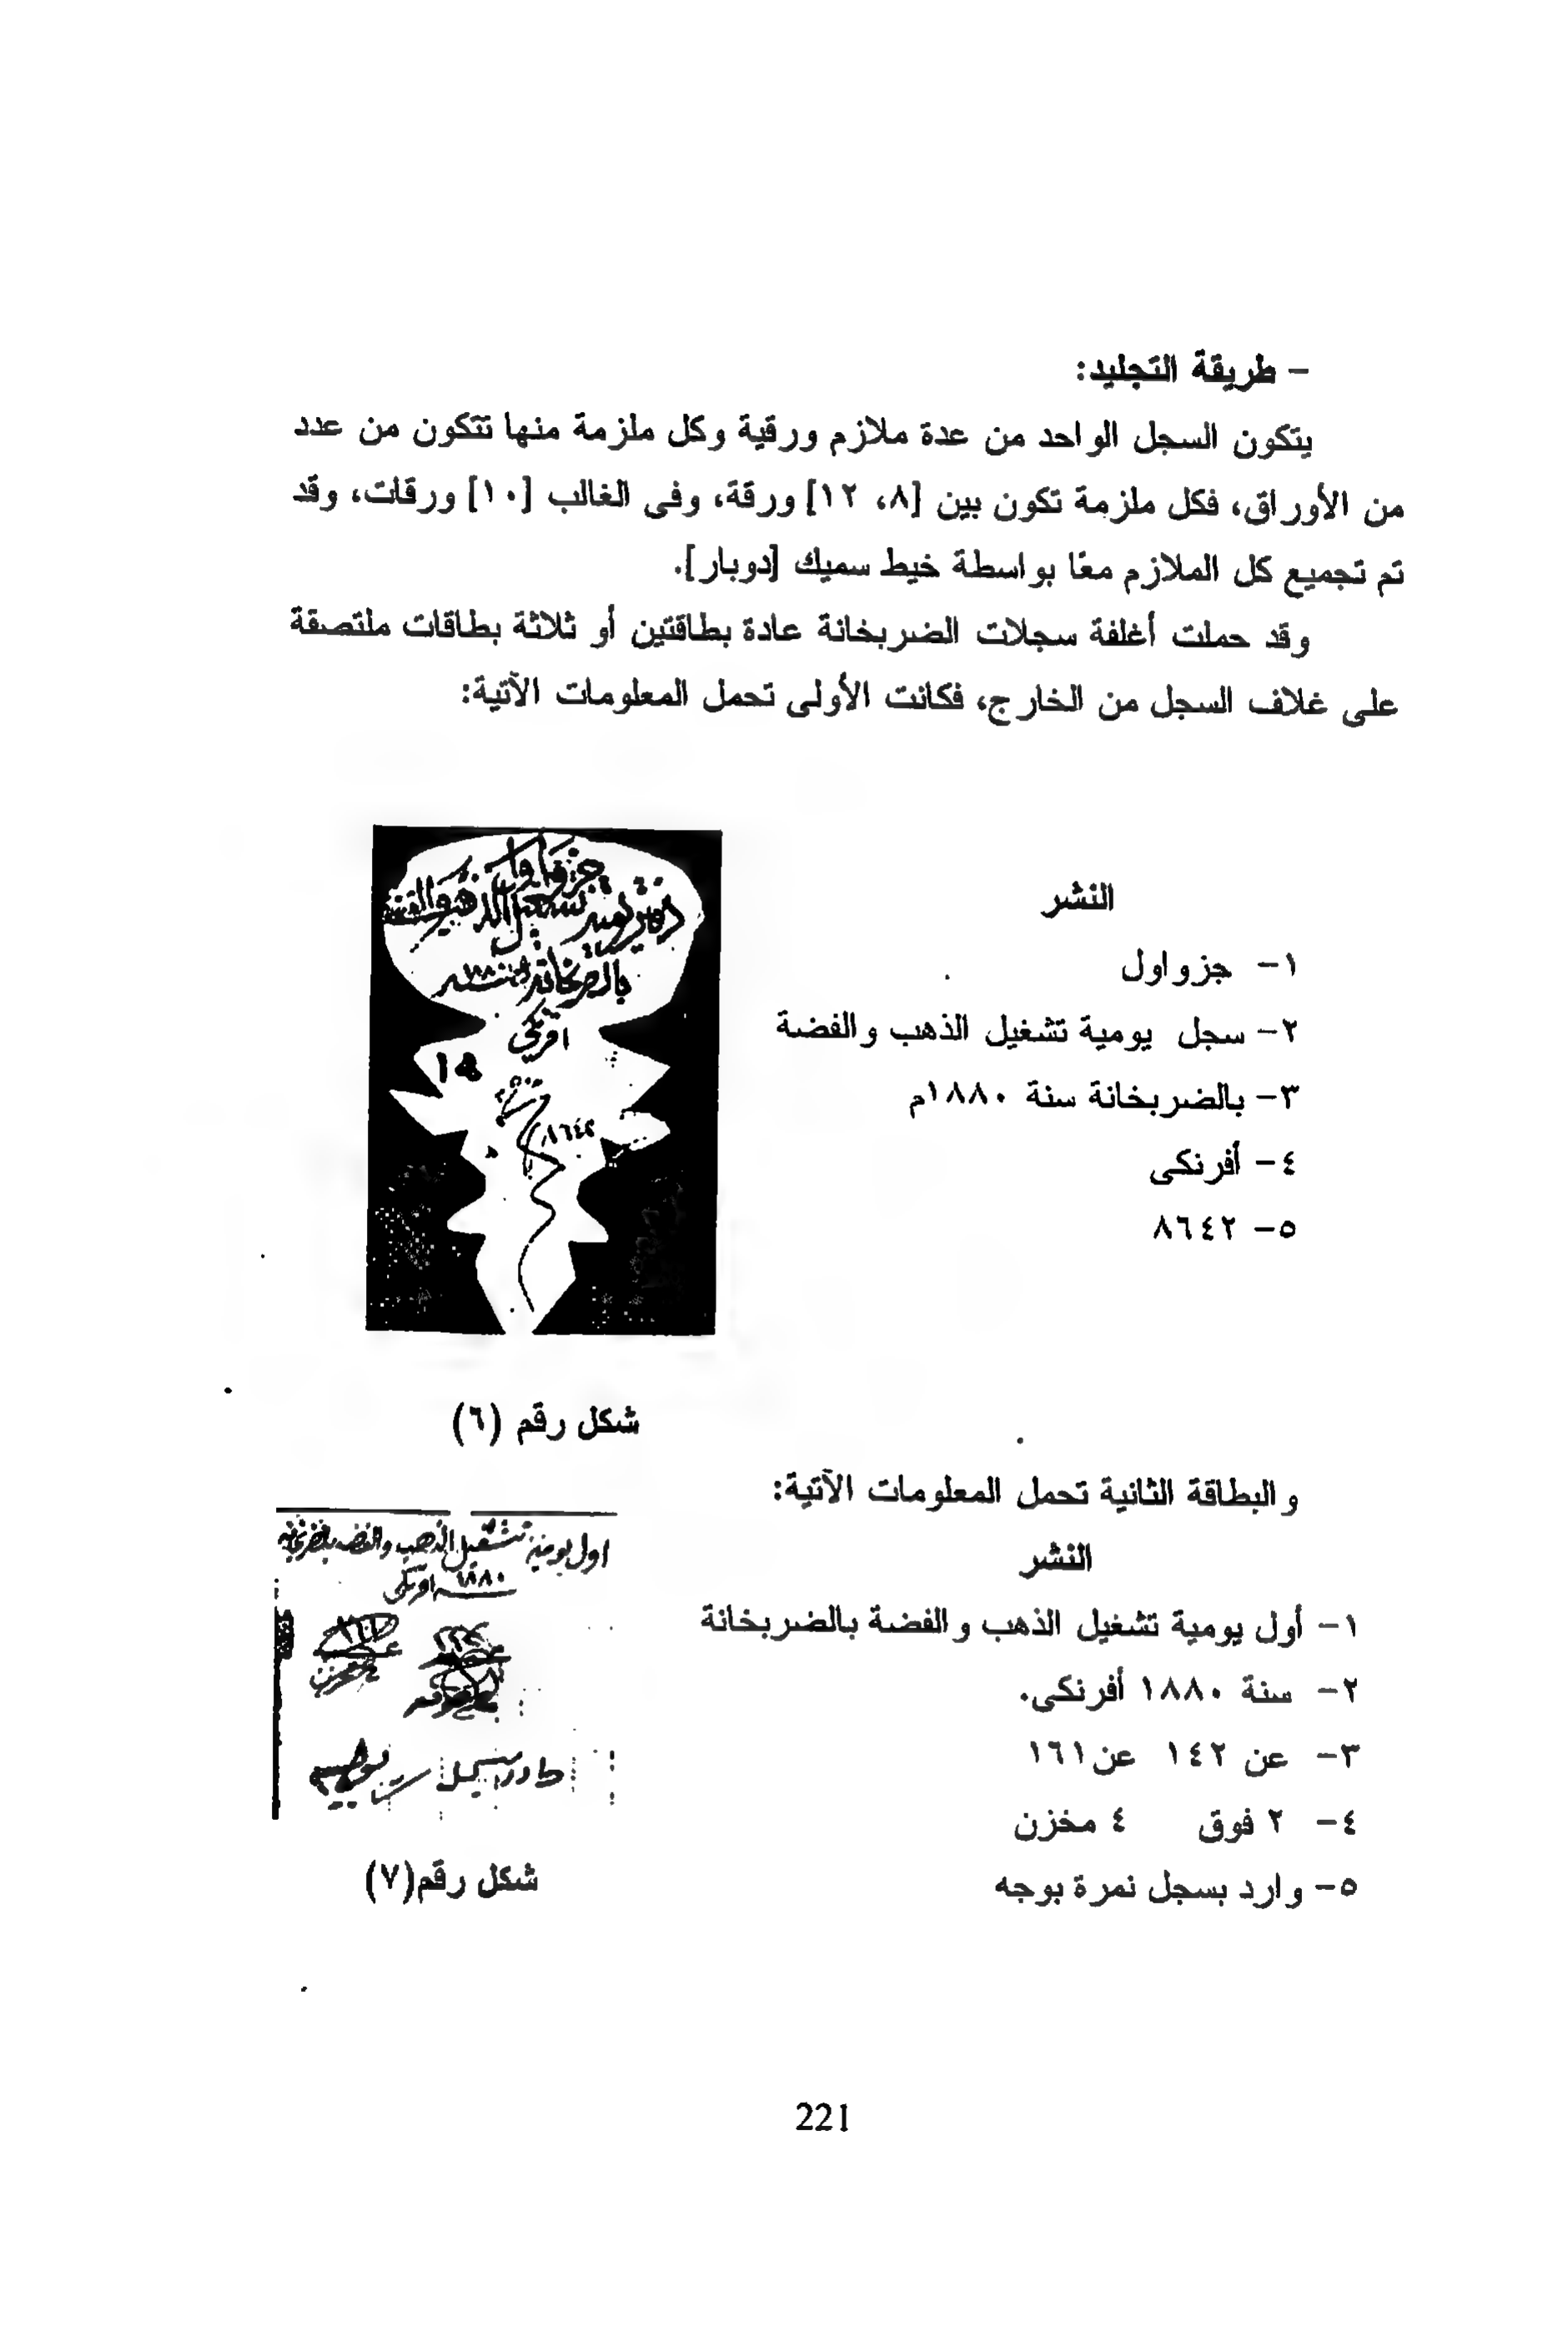 - طريقة التجليد:
يتكون السجل الواحد من عدة ملازم ورقية وكل ملزمة منها تتكون من عدد
من الأوراق، فكل ملزمة تكون بين [٨، ١٢] ورقة، وفى الغالب [١٠] ورقات، وقد
تم تجميع كل الملازم معًا بواسطة خيط سميك [دوبار].
وقد حملت أغلفة سجلات الضربخانة عادة بطاقتين أو ثلاثة بطاقات ملتصقة
على غلاف السجل من الخارج، فكانت الأولى تحمل المعلومات الآتية:
النشر
١- جزو اول
٢- سجل يومية تشغيل الذهب والفضة
٣- بالضربخانة سنة ١٨٨٠م
٤- أفرنكى
٥- ٨٦٤٢
افرنكي
٨٦٤٢
شكل رقم (٦)
والبطاقة الثانية تحمل المعلومات الآتية:
النشر
١- أول يومية تشغيل الذهب والفضة بالضربخانة
٢- سنة ١٨٨٠ أفرنكى.
٣- عن ١٤٢ عن ١٦١
٤- ٢ فوق ٤ مخزن
٥- وارد بسجل نمرة بوجه
اول يومية تشغيل الذهب والفضه بالضربخانه
سنة ١٨٨٠ افرنكى
شكل رقم(٧)
221